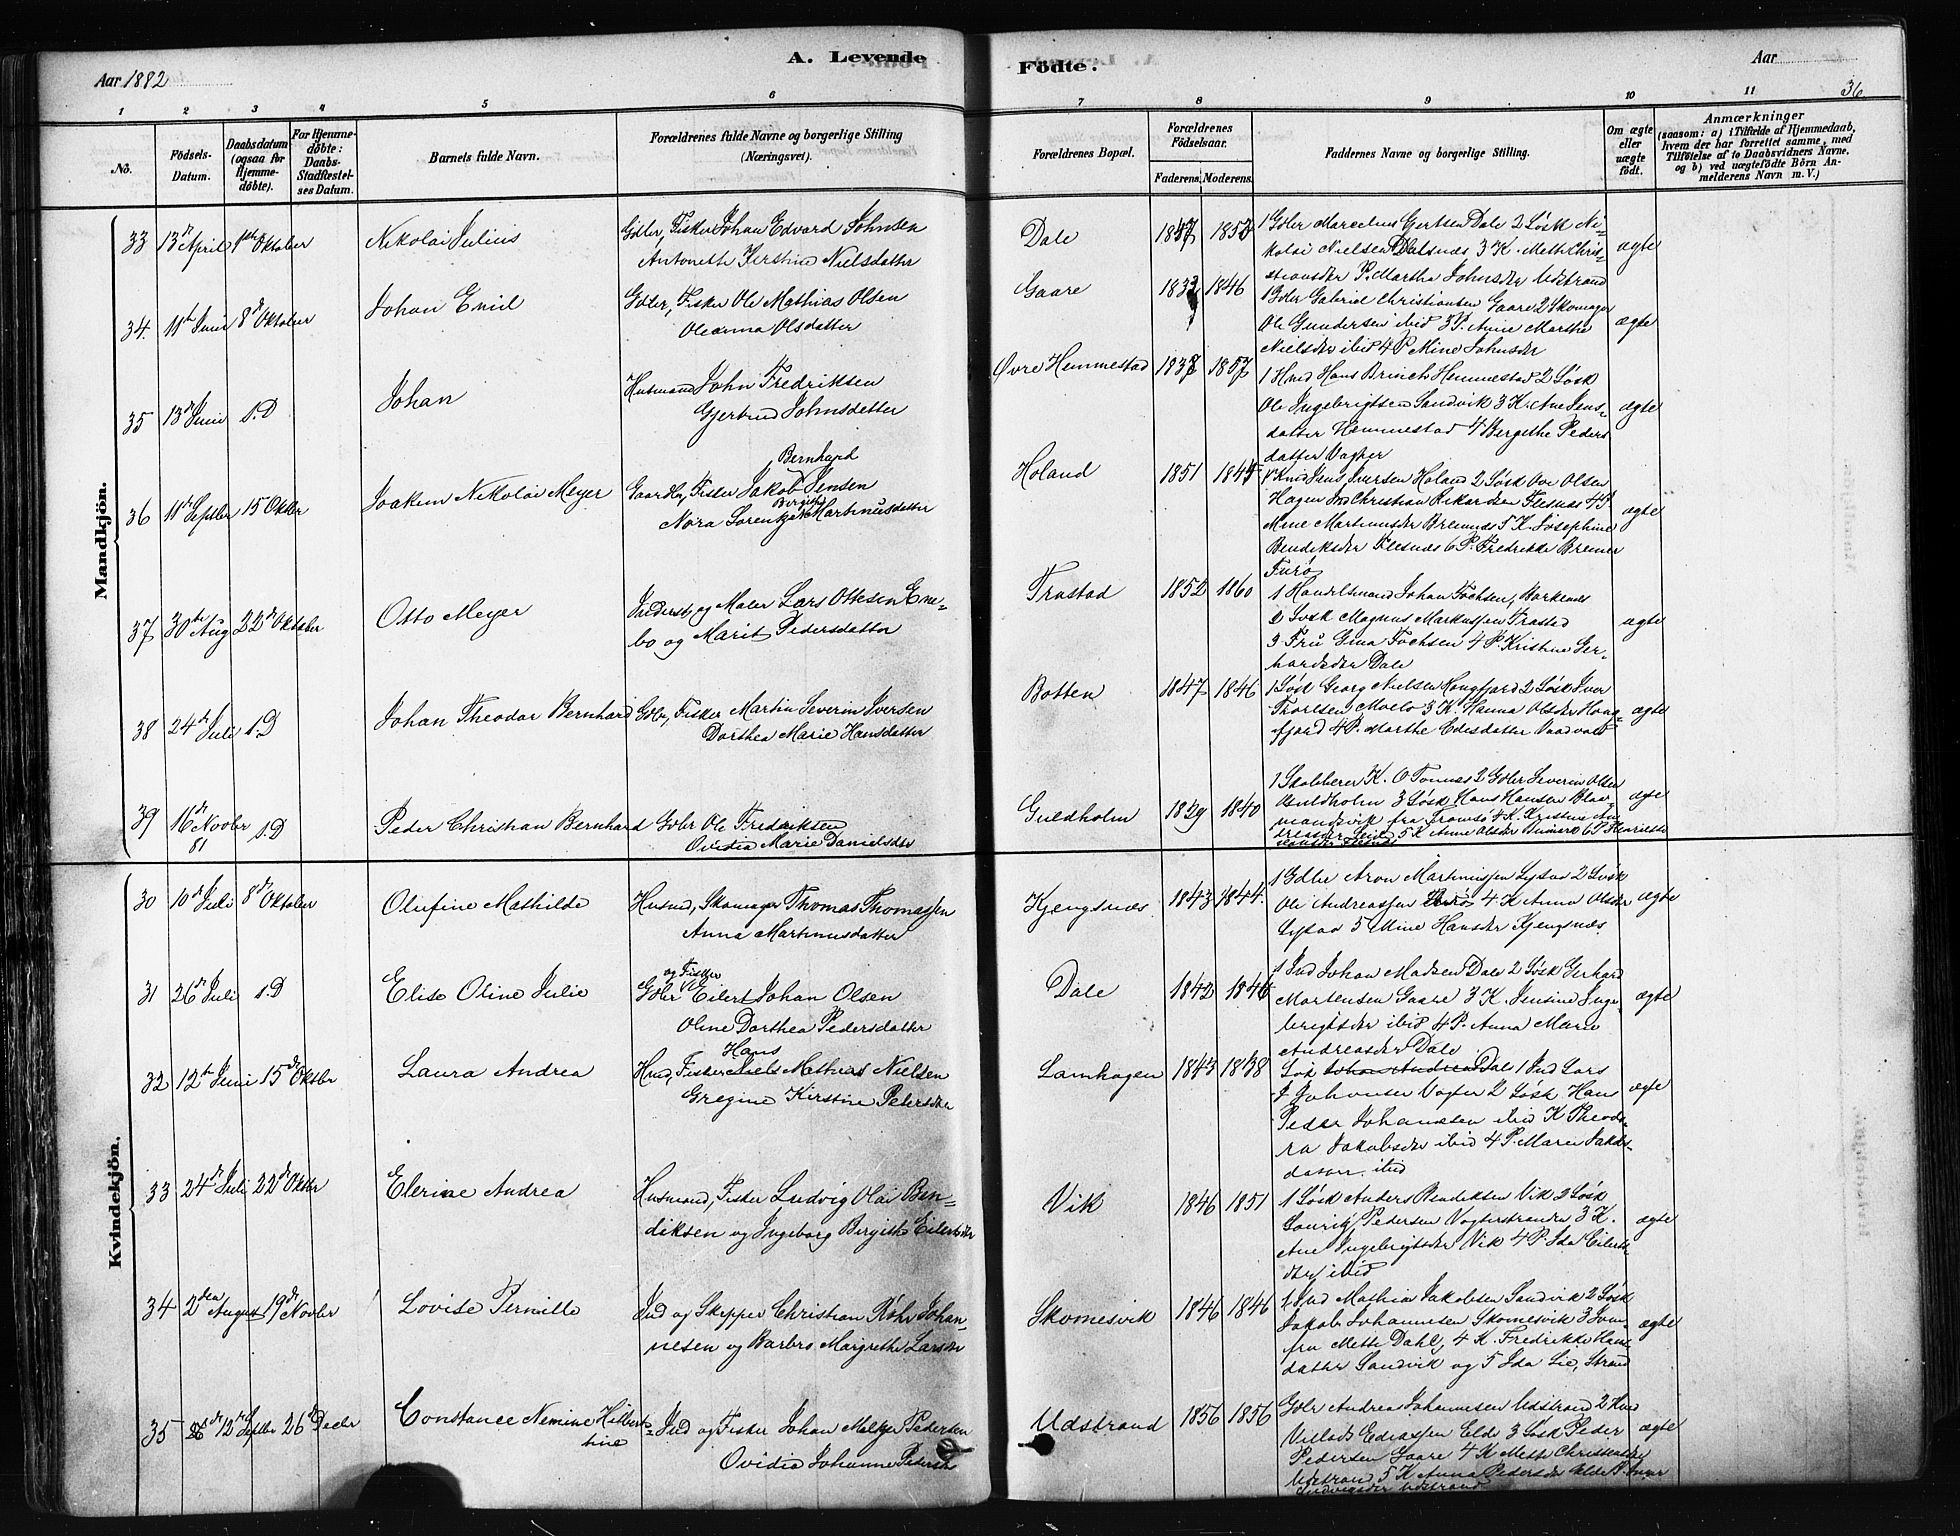 Aar 1882
A. Levende
Födte.
Aar
36
1 2 3 4 5 6 7 8 9 10 11
No.
Födsels-Datum.
Daabsdatum (ogsaa for Hjemmedöbte).
For Hjemmedöbte: Daabs-Stadfestelses Datum.
Barnets fulde Navn.
Forældrenes fulde Navne og borgerlige Stilling (Næringsvei).
Forældrenes Bopæl.
Forældrenes Födselsaar.
Faderens. Moderens.
Faddernes Navne og borgerlige Stilling.
Om ægte eller uægte födt.
Anmærkninger
(saasom: a) i Tilfælde af Hjemmedaab, hvem der har forrettet samme, med Tilföielse af to Daabsvidners Navne. og b) ved uægtefödte Börn Anmelderens Navn m. V.)
Mandkjön.
33 13de April 1ste Oktober Nikolai Julius Gdbr, Fisker Johan Edvard Johnsen
Antoneth Kirstine Nielsdatter
Dale 1847 1853 1 Gdbr Marcelius Gjertsen Dale 2 Løsk Ni-
kolai Nielsen Dalsnæs 3 K. Mette Chris-
tiansdtr P. Martha Johnsdtr Udstrand
ægte
34. 11te Juni 8de Oktober Johan Emil Gdbr, Fisker Ole Mathias Olsen
Oleanna Olsdatter
Gaare 1833 1846 1 Gdbr Gabriel Christiansen Gaare 2 Skomager
Ole Gundersen ibid 3 P. Anne Marthe
Nielsdtr ibid 4 P Mine Johnsdtr
ægte
35 13de Juni s.D Johan Husmand John Fredriksen
Gjertrud Johnsdatter
Øvre Hemmestad 1837 1857 1 Hmd Hans Brinch Hemmestad 2 Løsk
Ole Ingebrigtsen Sandvik 3 K. Ane Jens-
datter Hemmestad 4 Bergithe Peders
datter Vagper
ægte
36 11te Septbr 15 Oktbr Joakim Nikolai Meyer Gaardbr, Fisker Jakob Bernhard Jensen
Nora Lorentze Birgitte Martinusdatter
Holand 1851 1845 1 Knud Jens Iversen Holand 2 Løsk Ove Olsen
Hagen Ind Christian Rikardsen Flesnæs 4 P
Mine Martinusdtr Bremnes 5 K. Josephine
Bendiksdtr Flesnæs 6 P. Fredrikke Bremer
Furø
ægte
37 30te Aug 22de Oktober Otto Meyer Inderst og Maler Lars Ottesen Ene-
bo og Marit Pedersdatter
Trastad 1852 1860 1 Handelsmand Johan Tochsen, Harkenes
2 Løsk Magnus Markussen Trastad
3 Fru Gina Tochsen 4 P. Kristine Ger-
hardsdtr Dale
ægte
38 24de Juli s.D Johan Theodor Bernhard Gdbr, Fisker Martin Severin Iversen
Dorthea Marie Hansdatter
Botten 1847 1846 1 Løsk Georg Nielsen Kongsfjord 2 Løsk Iver
Thorlsen Moelo 3 K. Hanna Olsdtr Kong-
fjord 4 P. Marthe Edisdatter Vaadvold
ægte
39 16de Novbr 81 s.D Peder Christian Bernhard Gdbr Ole Fredriksen
Ovidia Marie Danielsdtr
Guldholm 1829 1840 1 Skolelærer K. O Tonnes 2 Gdbr Severin Olsen
Guldholm 3 Løsk Hans Hansen Blaa-
mandsvik fra Tromsø 4 K. Kristine An-
dreasdtr 5 K Anne Olsdtr 6 P Henriette
ægte
Kvindekjön.
30 10de Juli 8de Oktober Olufine Mathilde Husmd, Skomager Thomas Thomassen
Anna Martinusdatter
Kjengsnæs 1843 1844. 1 Gdbr Aron Martinussen Lystad 2 Løsk
Ole Andreassen 4 K Anna Olsdtr
Lystad 5 Mine Hansdtr Kjengsnæs.
ægte
31 26de Juli s.D Elise Oline Julie Gdbr og Fisker Eilert Johan Olsen
Oline Dorthea Pedersdatter
Dale 1842 1846 1 Ind Johan Madsen Dale 2 Løsk Gerhard
Mortensen Gaare 3 K. Jensine Inge-
brigtsdtr ibid 4 P. Anna Marie
Andreasdtr Dale
ægte
32 12te Juni 15de Oktbr Laura Andrea Hmd, Fisker Hans Mathias Nielsen
Gregine Kirstine Petersdtr
Lamhagen 1843 1838 Løsk 1 Ind Lars
J Johansen Vagper 2 Løsk Hans
Peder Johansen ibid K Theodo-
ra Jakobsdtr ibid 4 P. Maren Jakobs-
datter ibid
ægte
33 24de Juli 22de Oktbr Elerine Andrea Husmand, Fisker Ludvig Olai Ben-
diksen og Ingeborg Bergithe Eilertsdtr
Vik 1846 1851 1 Løsk Anders Bendiksen Vik 2 Løsk
Lauritz Pedersen Vogterstranden 3 K.
Ane Ingebrigtsdtr Vik 4 P. Ida Eilerts-
dtr ibid
ægte
34 2den August 19de Novbr Lovise Pernille Ind og Skipper Christian Röhr Johan-
nesen og Barbro Margrethe Larsdtr
Skomesvik 1846 1846 1 Ind Mathias Jakobsen Sandvik 2 Løsk
Jakob Johannesen Skomesvik 3 Jom-
fru Mette Dahl, 4 K. Fredrikke Hans-
datter Sandvik og 5 Ida Lie, Strand
ægte
35 12te Septbr 26de Decbr Constance Nemine Hilberts-
tine
Ind og Fisker Johan Melkjer Pedersen
Ovidia Johanne Pedersdtr
Udstrand 1856 1856 Gdbr Andrea Johannesen Udstrand 2 Hmd
Villads Ediassen Elde 3 Løsk Peder
Pedersen Gaare 4 K Mette Christensdtr
Udstrand 5 K Anna Pedersdtr Elde
Ludvigsdtr Udstrand
ægte